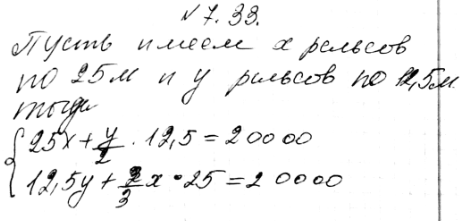 № 7.33.
Пусть имеем x рельсов
по 25м и y рельсов по 12,5м
тогда
{ 25x + y/2 · 12,5 = 20000
12,5y + 2/3 x · 25 = 20000